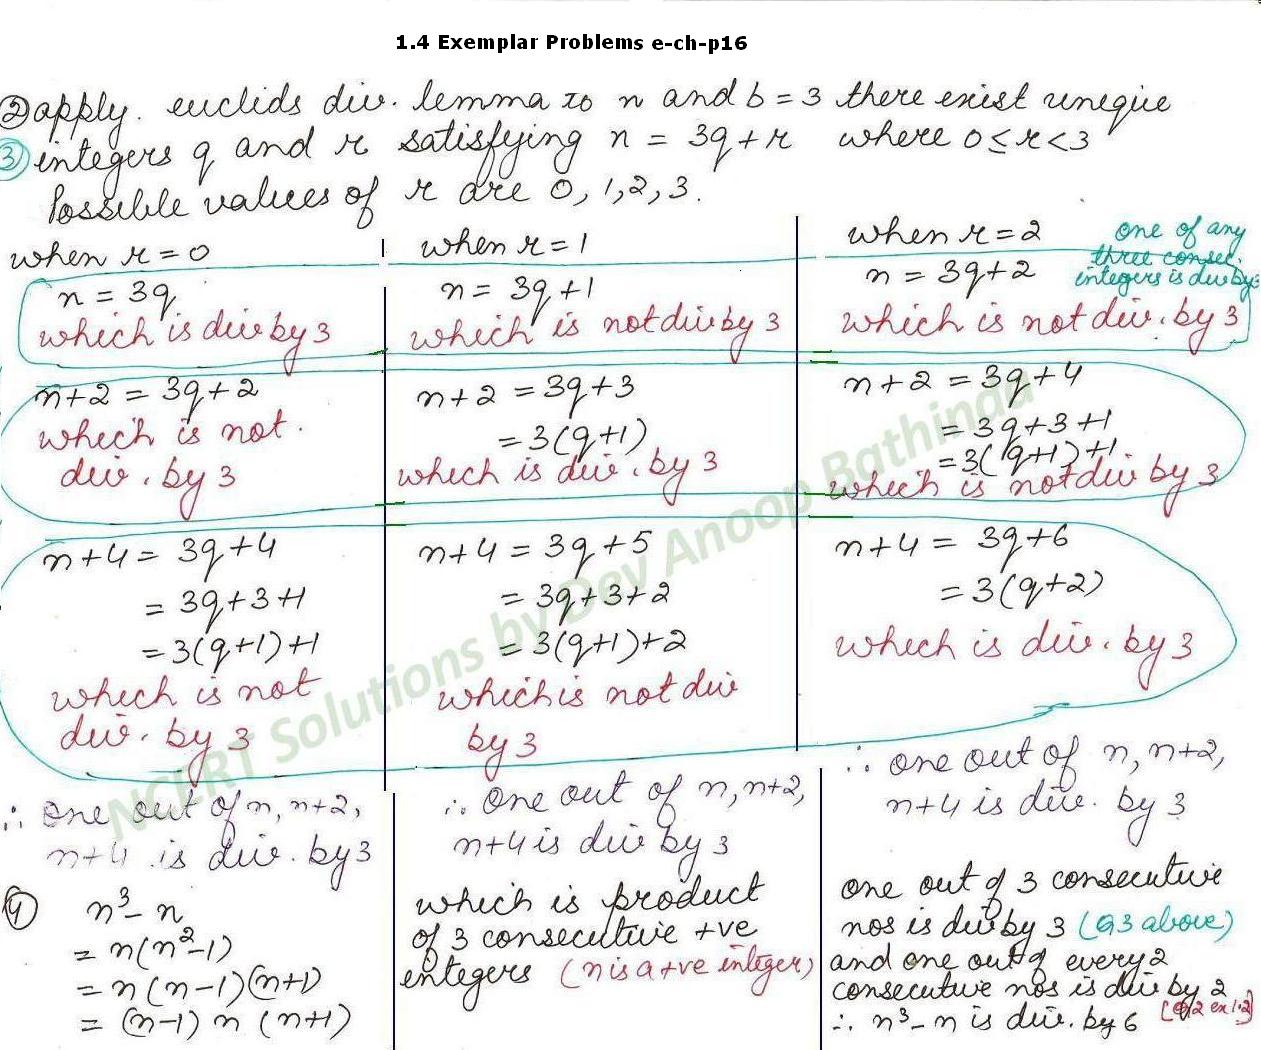 1.4 Exemplar Problems e-ch-p16
② apply. euclids div. lemma to n and b = 3 there exist uneque
③ integers q and r satisfying n = 3q + r where 0 ≤ r < 3
Possible values of r are 0, 1, 2, 3.
when r = 0
n = 3q
which is div by 3
n+2 = 3q+2
which is not.
div. by 3
n+4 = 3q+4
= 3q+3+1
= 3(q+1)+1
which is not
div. by 3
∴ one out of n, n+2,
n+4 is div. by 3
when r = 1
n = 3q+1
which is not div by 3
n+2 = 3q+3
= 3(q+1)
which is div. by 3
n+4 = 3q+5
= 3q+3+2
= 3(q+1)+2
which is not div
by 3
∴ one out of n, n+2,
n+4 is div by 3
when r = 2
one of any
three consec.
integers is div by
n = 3q+2
which is not div. by 3
n+2 = 3q+4
= 3q+3+1
= 3(q+1)+1
which is not div by 3
n+4 = 3q+6
= 3(q+2)
which is div. by 3
∴ one out of n, n+2,
n+4 is div. by 3
④ n³ - n
= n(n²-1)
= n(n-1)(n+1)
= (n-1) n (n+1)
which is product
of 3 consecutive +ve
integers (n is a +ve integer)
one out of 3 consecutive
nos is div by 3 (Q3 above)
and one out of every 2
consecutive nos is div by 2
[Q2 ex 1.2]
∴ n³-n is div. by 6
NCERT Solutions by Dev Anoop Bathinda